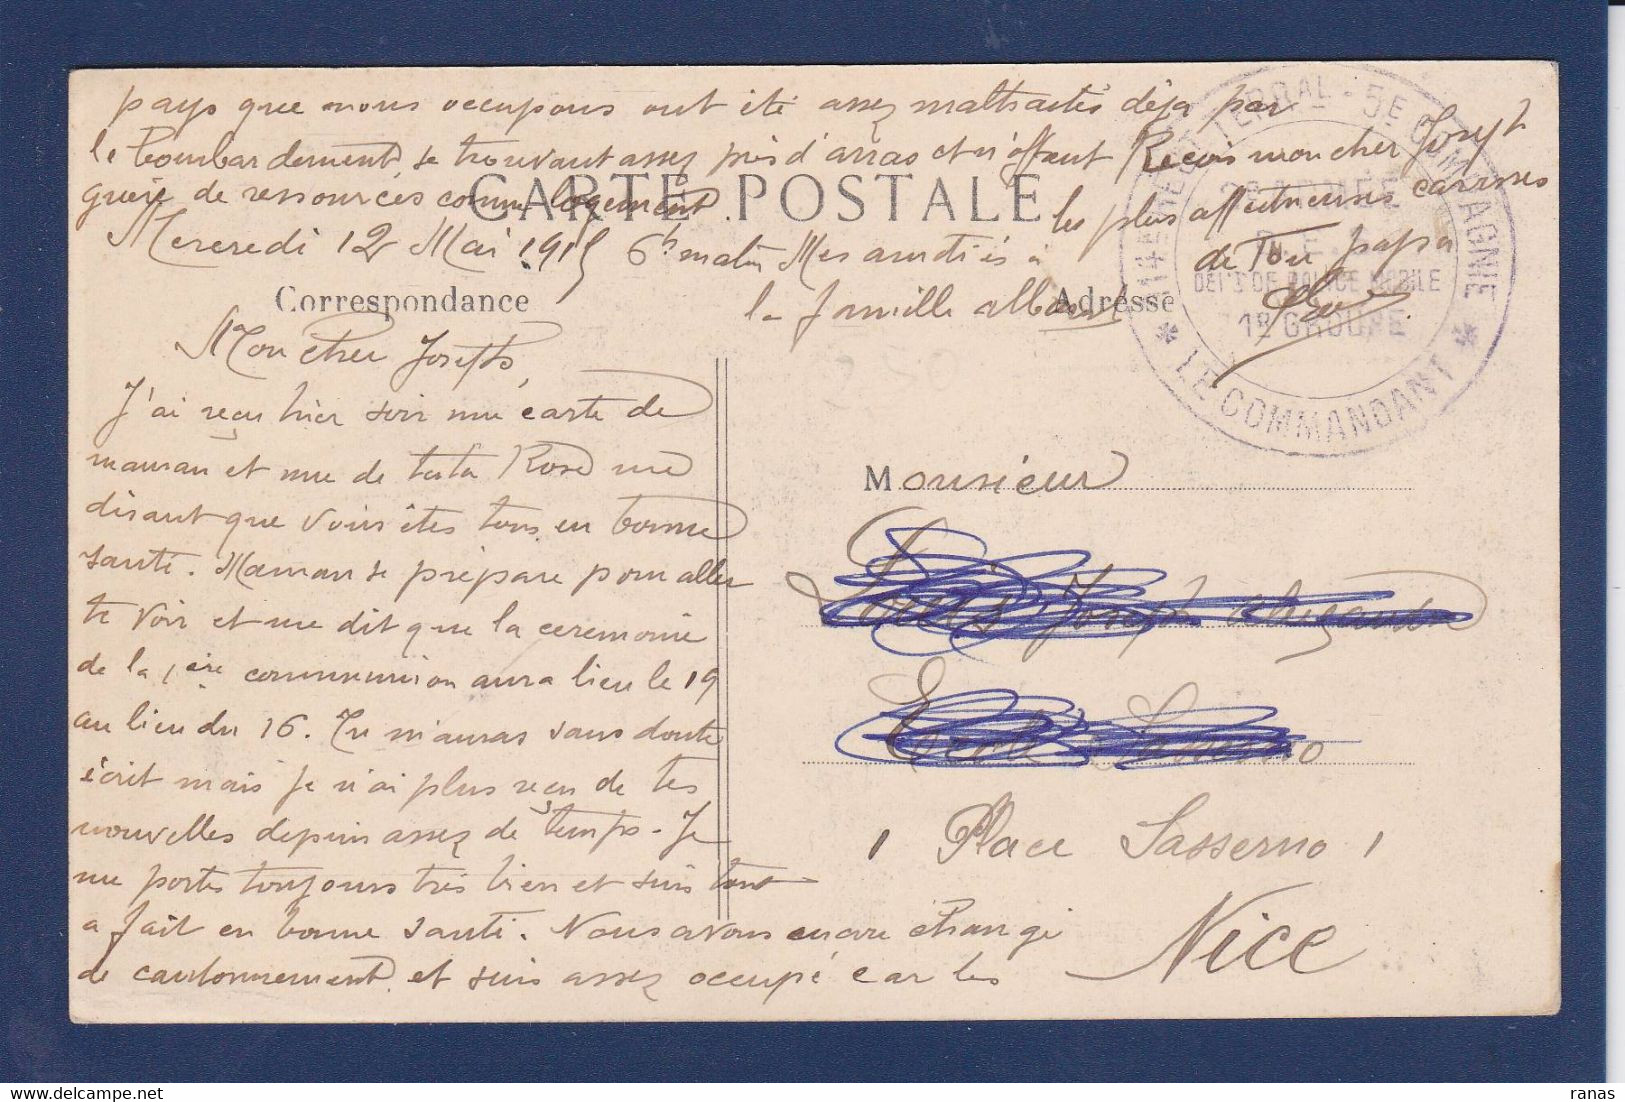 pays que nous occupons ont été assez maltraités déja par
le bombardement, se trouvant assez près d'arras et n'offrant
guère de ressources comme logement.
CARTE POSTALE
Reçois mon cher Joseph
les plus affectueuses caresses
de Ton papa
Mercredi 12 Mai 1915 6h matin
Mes amitiés à
la famille
Correspondance
Adresse
Mon cher Joseph,
J'ai reçu hier soir une carte de
maman et une de tata Rose me
disant que vous êtes tous en bonne
santé. Maman se prépare pour aller
te voir et me dit que la ceremonie
de la 1ère communion aura lieu le 19
au lieu du 16. Tu m'auras sans doute
écrit mais je n'ai plus reçu de tes
nouvelles depuis assez de temps. Je
me porte toujours très bien et suis tout
a fait en bonne santé. Nous avons encore changé
de cantonnement et suis assez occupé car les
Monsieur
Louis Joseph
Ecole Sasserno
Place Sasserno
Nice
TERRITORIAL - 5E COMPAGNIE
DE POLICE MOBILE
1E GROUPE
* LE COMMANDANT *
ranas